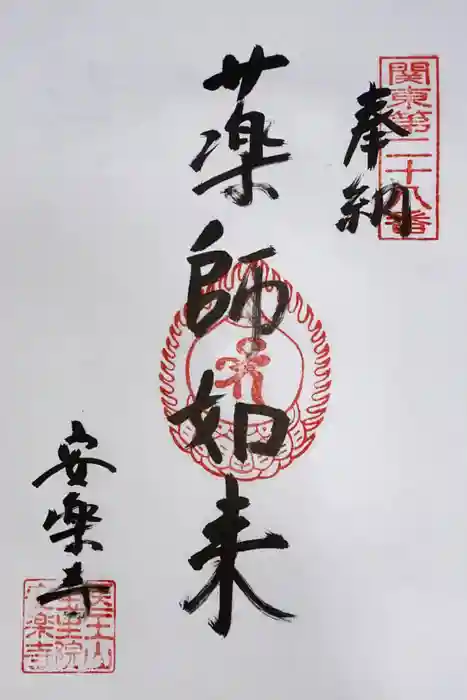 関東第二十八番
奉納
薬師如来
安楽寺
医王山
王生院
安楽寺